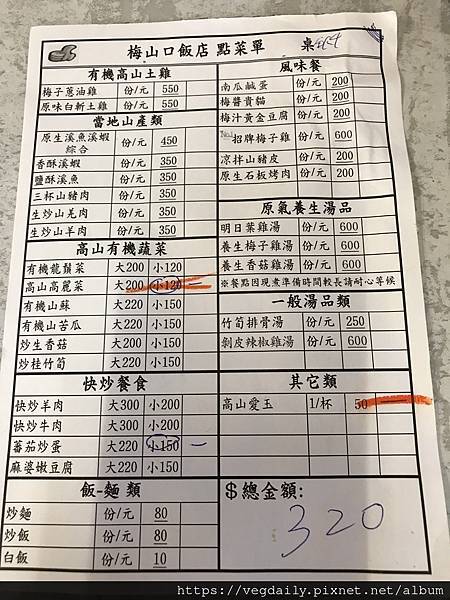 梅山口飯店 點菜單 桌
有機高山土雞
梅子蔥油雞 份/元 550
原味白斬土雞 份/元 550
當地山產類
原生溪魚溪蝦綜合 份/元 450
香酥溪蝦 份/元 350
鹽酥溪魚 份/元 350
三杯山豬肉 份/元 350
生炒山羌肉 份/元 350
生炒山羊肉 份/元 350
高山有機蔬菜
有機龍鬚菜 大200 小120
高山高麗菜 大200 小120
有機山蘇 大220 小150
有機山苦瓜 大220 小150
炒生香菇 大220 小150
炒桂竹筍 大220 小150
快炒餐食
快炒羊肉 大300 小200
快炒牛肉 大300 小200
蕃茄炒蛋 大220 小150
麻婆嫩豆腐 大220 小150
飯-麵 類
炒麵 份/元 80
炒飯 份/元 80
白飯 份/元 10
風味餐
南瓜鹹蛋 份/元 200
梅醬貴貓 份/元 200
梅汁黃金豆腐 份/元 200
No.1招牌梅子雞 份/元 600
涼拌山豬皮 份/元 200
原生石板烤肉 份/元 200
原氣養生湯品
明日葉雞湯 份/元 600
養生梅子雞湯 份/元 600
養生香菇雞湯 份/元 600
※餐點因現煮準備時間較長請耐心等候
一般湯品類
竹筍排骨湯 份/元 250
剝皮辣椒雞湯 份/元 600
其它類
高山愛玉 1/杯 50
$總金額:
320
https://vegdaily.pixnet.net/album